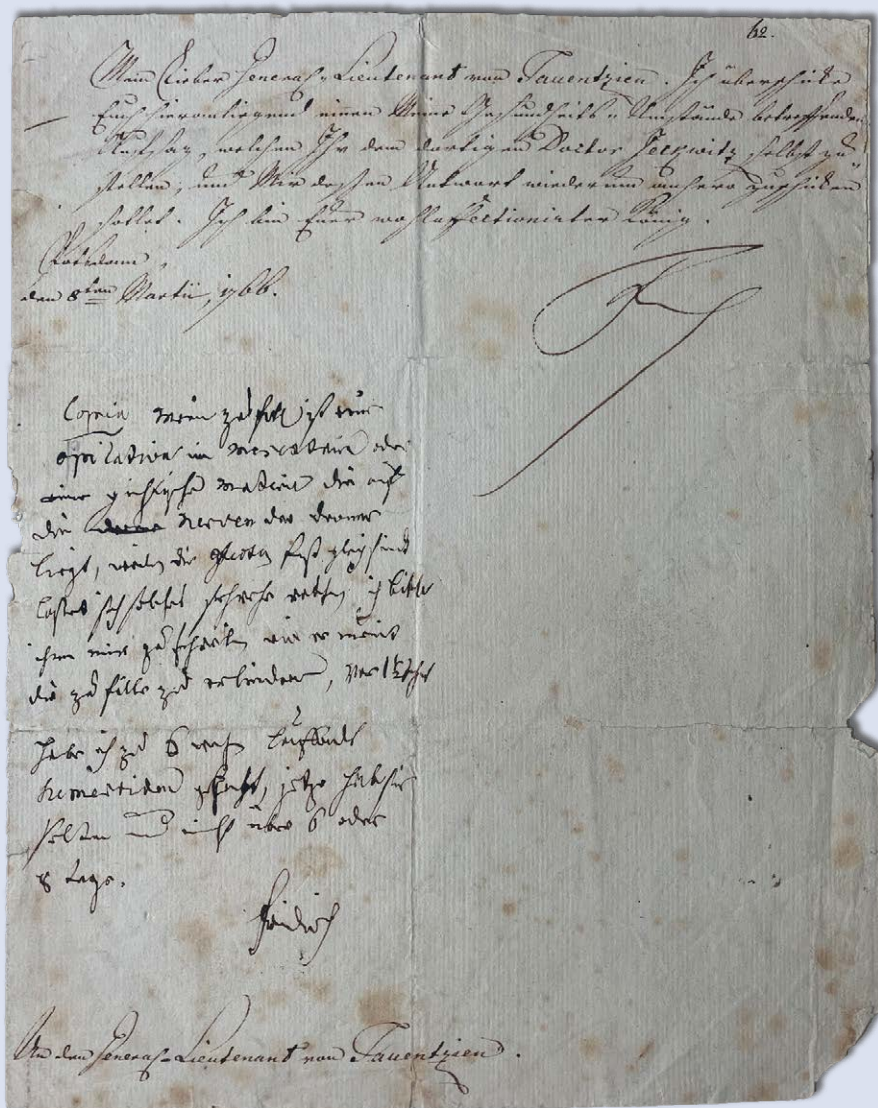 62.
Mein lieber General-Lieutenant von Tauentzien. Ich überschicke
Euch hieranliegend einen Meine Gesundheits-Umstände betreffenden
Aufsaz, welchen Ihr dem dortigen Doctor selbst zu-
stellen, und Mir dessen Antwort wiederum anhero zuschicken
sollet. Ich bin Euer wohlaffectionirter König.
Potsdam,
den 8ten Martii, 1766.
Copia mein zufal ist eine
opilation im oder
eine gichtische materie die auf
die nerven der
liegt, weilen die fast gleich sindt
lasset sich solches schwehr rathen, ich bitte
ihm mir zu schreiben wie er meint
die zufälle zu, vor 1½ Jahr
habe ich zu 6 laufende
gehabt, jetzo habe sie
selten und nicht über 6 oder
8 tage.
Fridrich
An den General-Lieutenant von Tauentzien.